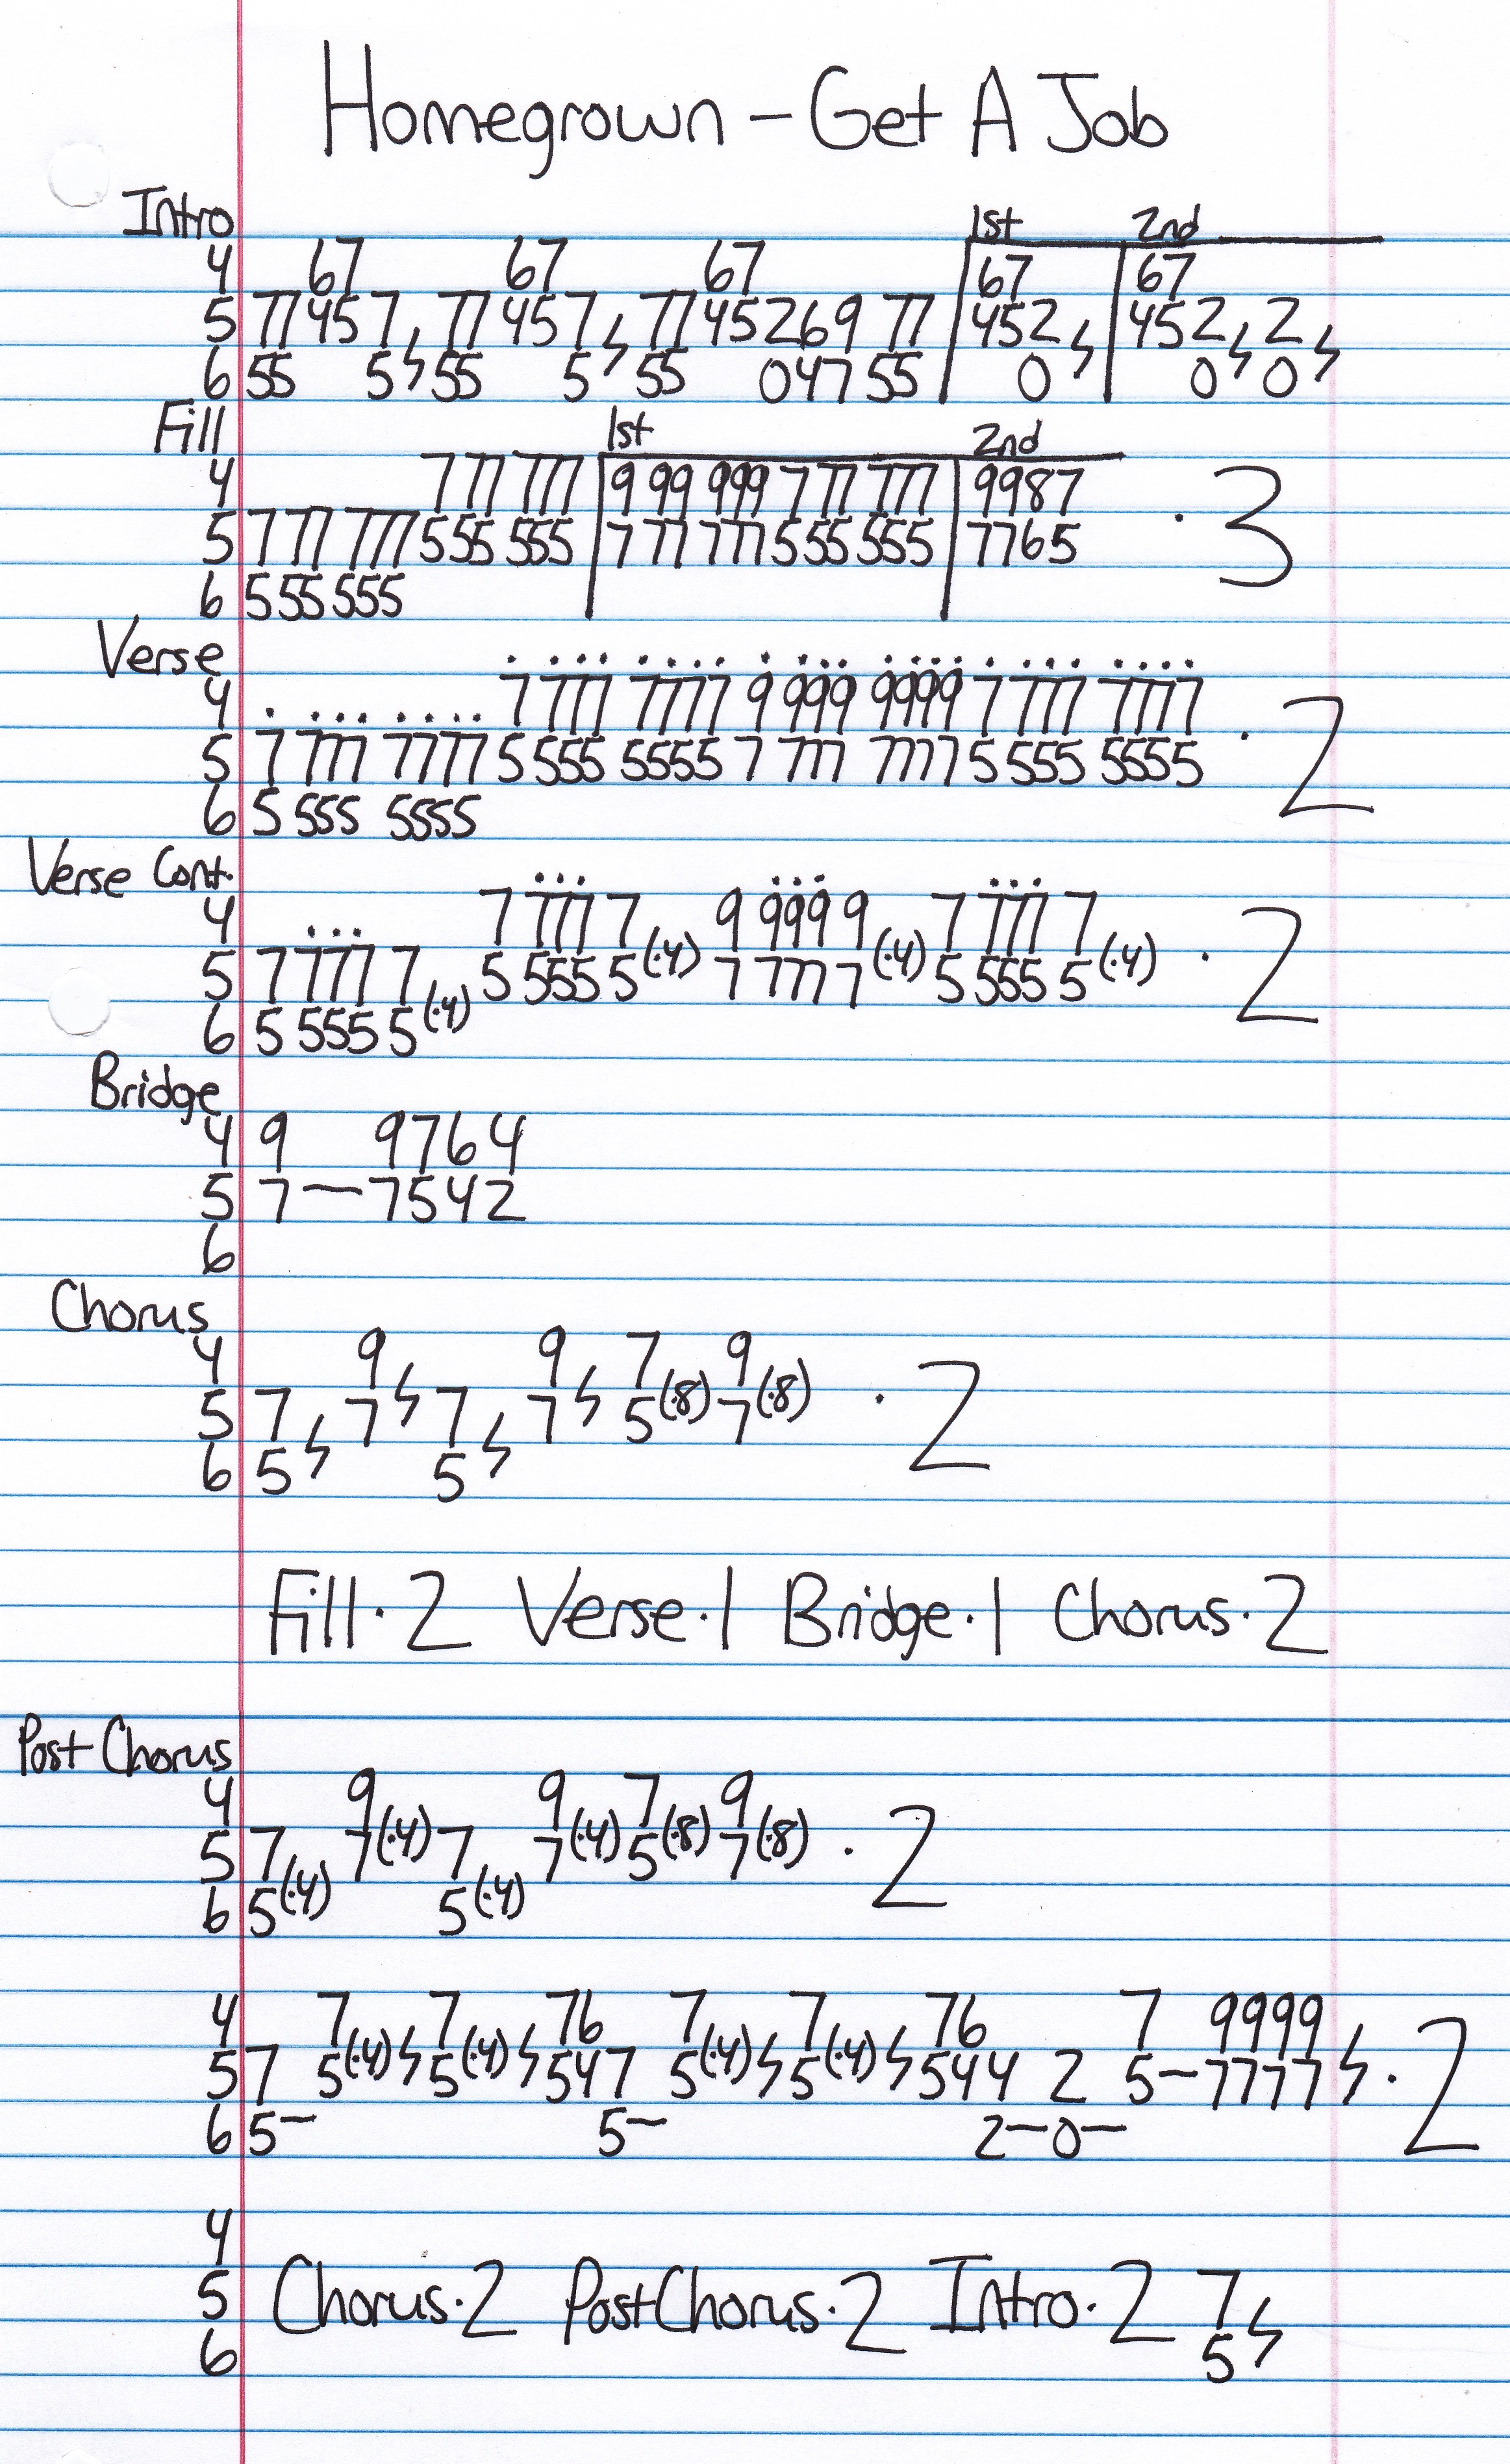 Homegrown - Get A Job
Intro 1st 2nd
4 67 67 67 67 67
5 77 45 7 ϟ 77 45 7 ϟ 77 45269 77 452 ϟ 452 ϟ 2 ϟ
6 55 5 55 5 55 047 55 0 0 0
Fill 1st 2nd
4 7 77 777 9 99 999 7 77 777 9987 · 3
5 7 77 777 555 555 7 77 777 555 555 7765
6 555 555
Verse . ... .... . ... .... . ... ....
4 . ... .... 7 777 7777 9 999 9999 7 777 7777 · 2
5 7 777 7777 5 555 5555 7 777 7777 5 555 5555
6 5 555 5555
Verse Cont. ... ... ...
4 ... 7 777 7 9 999 9 7 777 7
5 7 777 7 5 555 5(·4) 7 777 7(·4) 5 555 5(·4) · 2
6 5 555 5(·4)
Bridge
4 9 9764
5 7 — 7542
6
Chorus
4 9 9 7 9
5 7 7 ϟ 7 7 ϟ 5(·8) 7(·8) · 2
6 5 ϟ 5 ϟ
Fill·2 Verse·1 Bridge·1 Chorus·2
Post Chorus
4 9 9 7 9
5 7 7(·4) 7 7(·4) 5(·8) 7(·8) · 2
6 5(·4) 5(·4)
4 7 7 76 7 7 76 7 9999
5 7 5(·4) ϟ 5(·4) ϟ 547 5(·4) ϟ 5(·4) ϟ 544 2 5—7777 ϟ · 2
6 5— 5— 2—0—
4
5 Chorus·2 PostChorus·2 Intro·2 7 ϟ
6 5